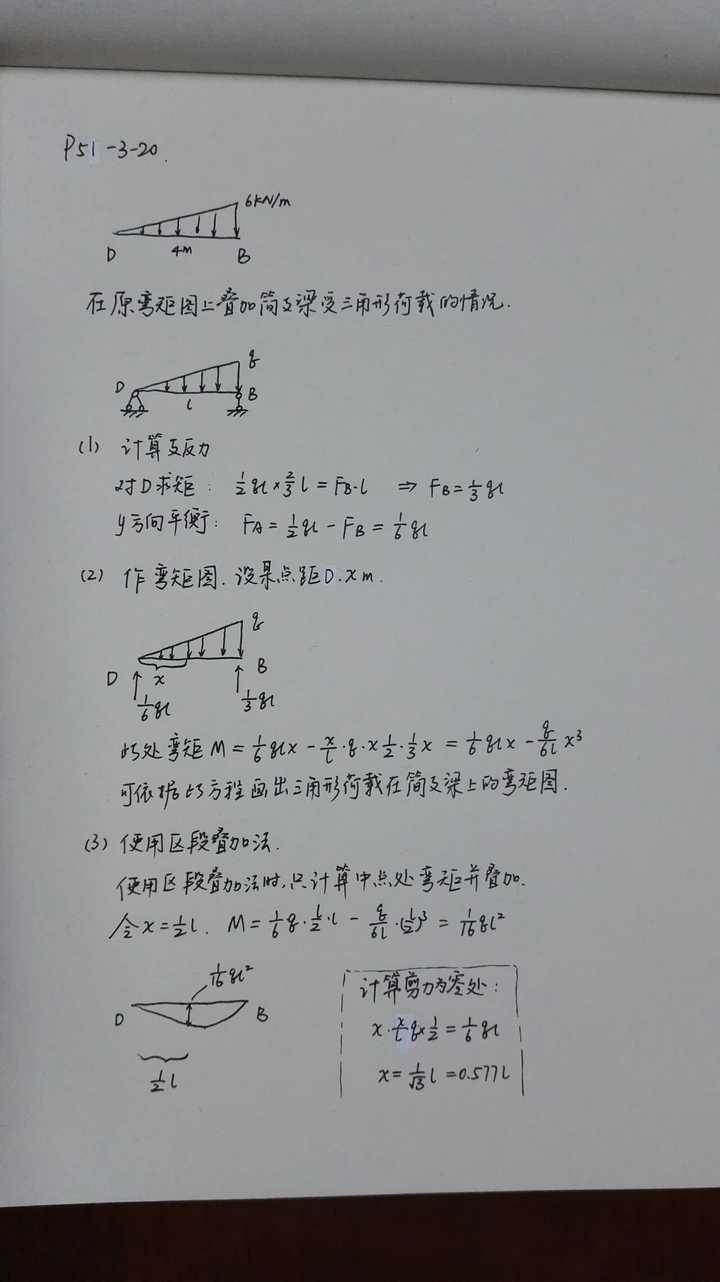 P51-3-20.
6kN/m
D 4m B
在原弯矩图上叠加简支梁受三角形荷载的情况.
q
D l B
(1) 计算支反力
对D求矩: ½ql×⅔l=F_B·l ⇒ F_B=⅓ql
y方向平衡: F_A=½ql-F_B=⅙ql
(2) 作弯矩图. 设某点距D.xm.
q
D x B
⅙ql ⅓ql
此处弯矩M=⅙qlx-x/l·q·x½·⅓x=⅙qlx-q/6l x³
可依据此方程画出三角形荷载在简支梁上的弯矩图.
(3) 使用区段叠加法.
使用区段叠加法时,只计算中点处弯矩并叠加.
令x=½l. M=⅙q·½·l-q/6l·(l/2)³=1/16ql²
1/16ql²
D B
½l
计算剪力为零处:
x·x/l q×½=⅙ql
x=1/√3 l=0.577l